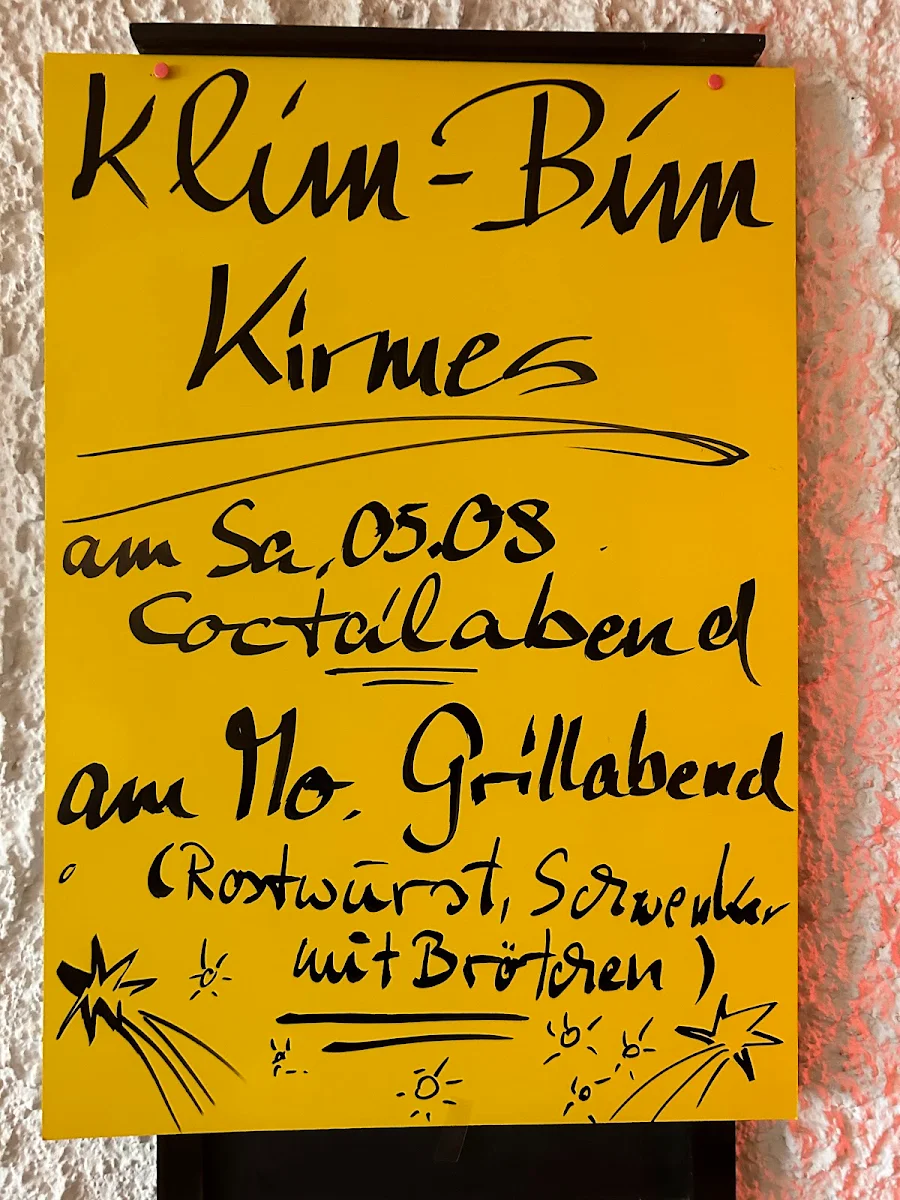 Klim-Bim
Kirmes
am Sa, 05.08
Coctailabend
am Mo. Grillabend
(Rostwurst, Schwenker
mit Brötchen)